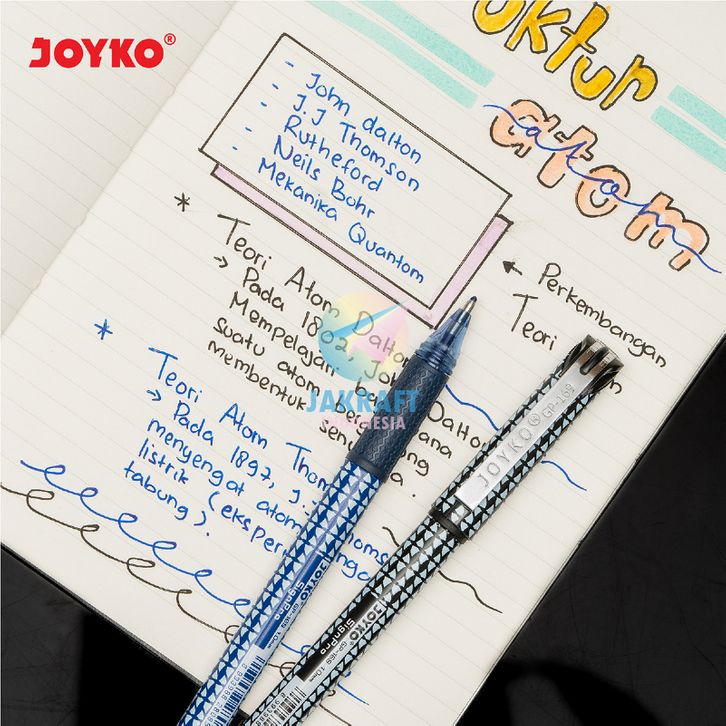 JOYKO®
uktur
atom
atom
- John dalton
- J.J Thomson
- Rutheford
- Neils Bohr
Mekanika Quantom
← Perkembangan
Teori
* Teori Atom Dalton
→ Pada 1802, John Dalton
Mempelajari
suatu atom
membentuk
* Teori Atom Thomson
→ Pada 1897, J.J
menyengat atom
listrik (eksperi
tabung).
JAKRAFT
INDONESIA
JOYKO® GP-169
JOYKO
SignPro
1.0mm
JOYKO
SignPro
GP-169 1.0mm